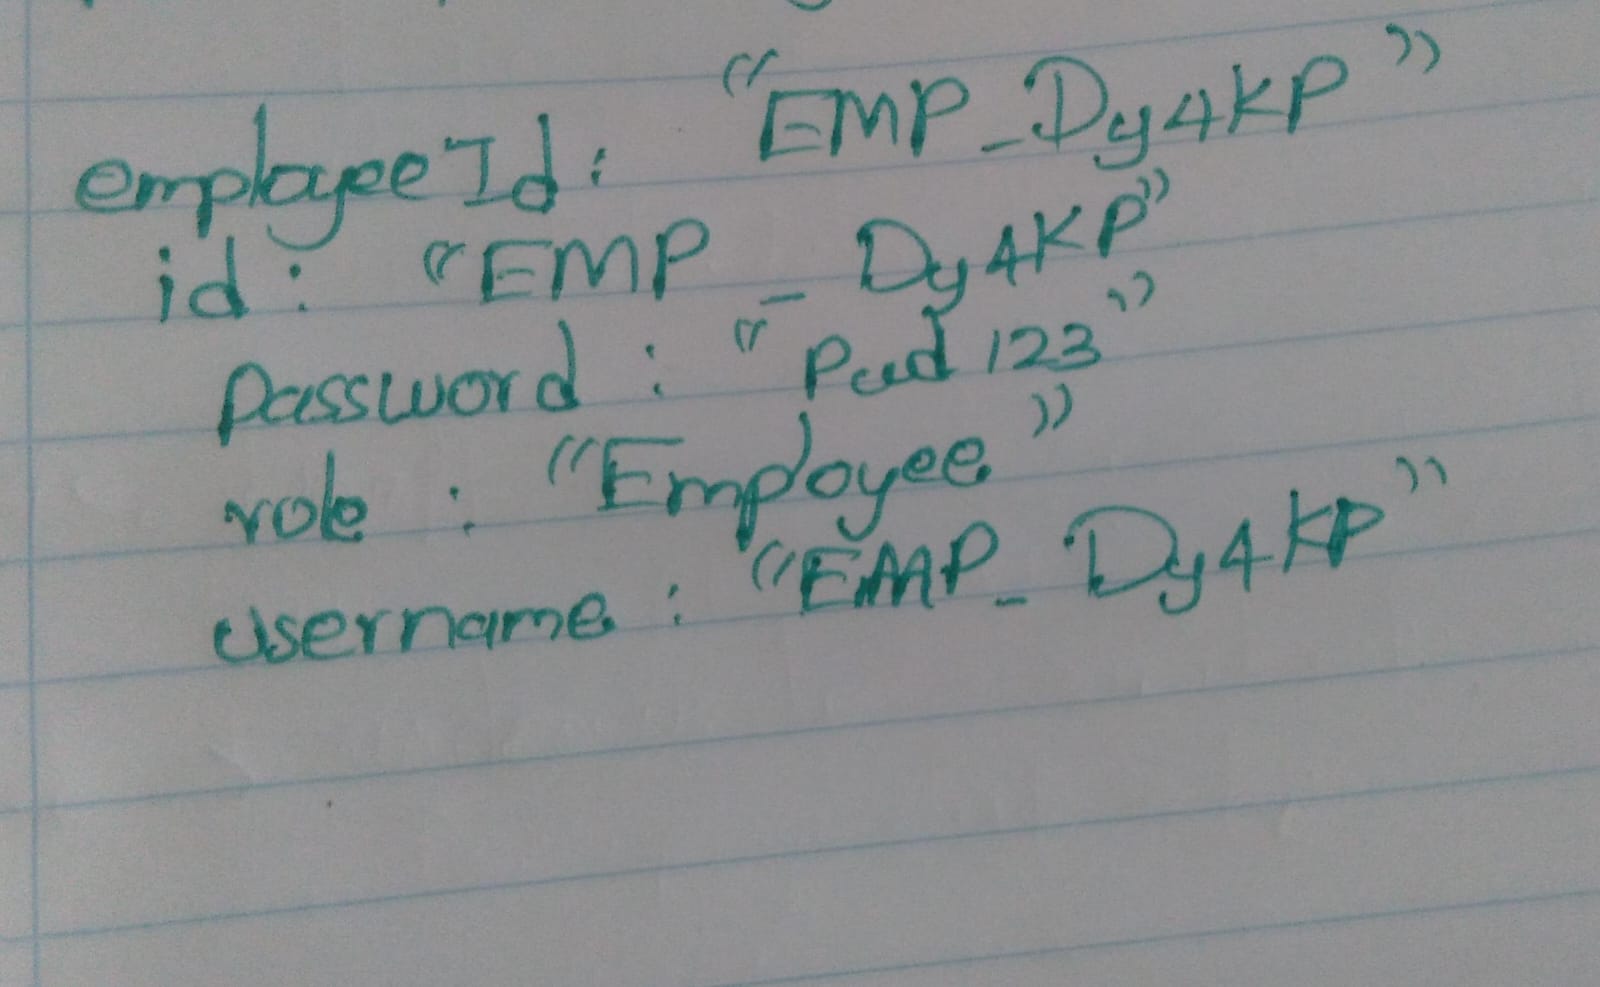 employeeId: "EMP_Dy4KP"
id: "EMP_Dy4KP"
password: "Pwd123"
role: "Employee"
username: "EMP_Dy4KP"